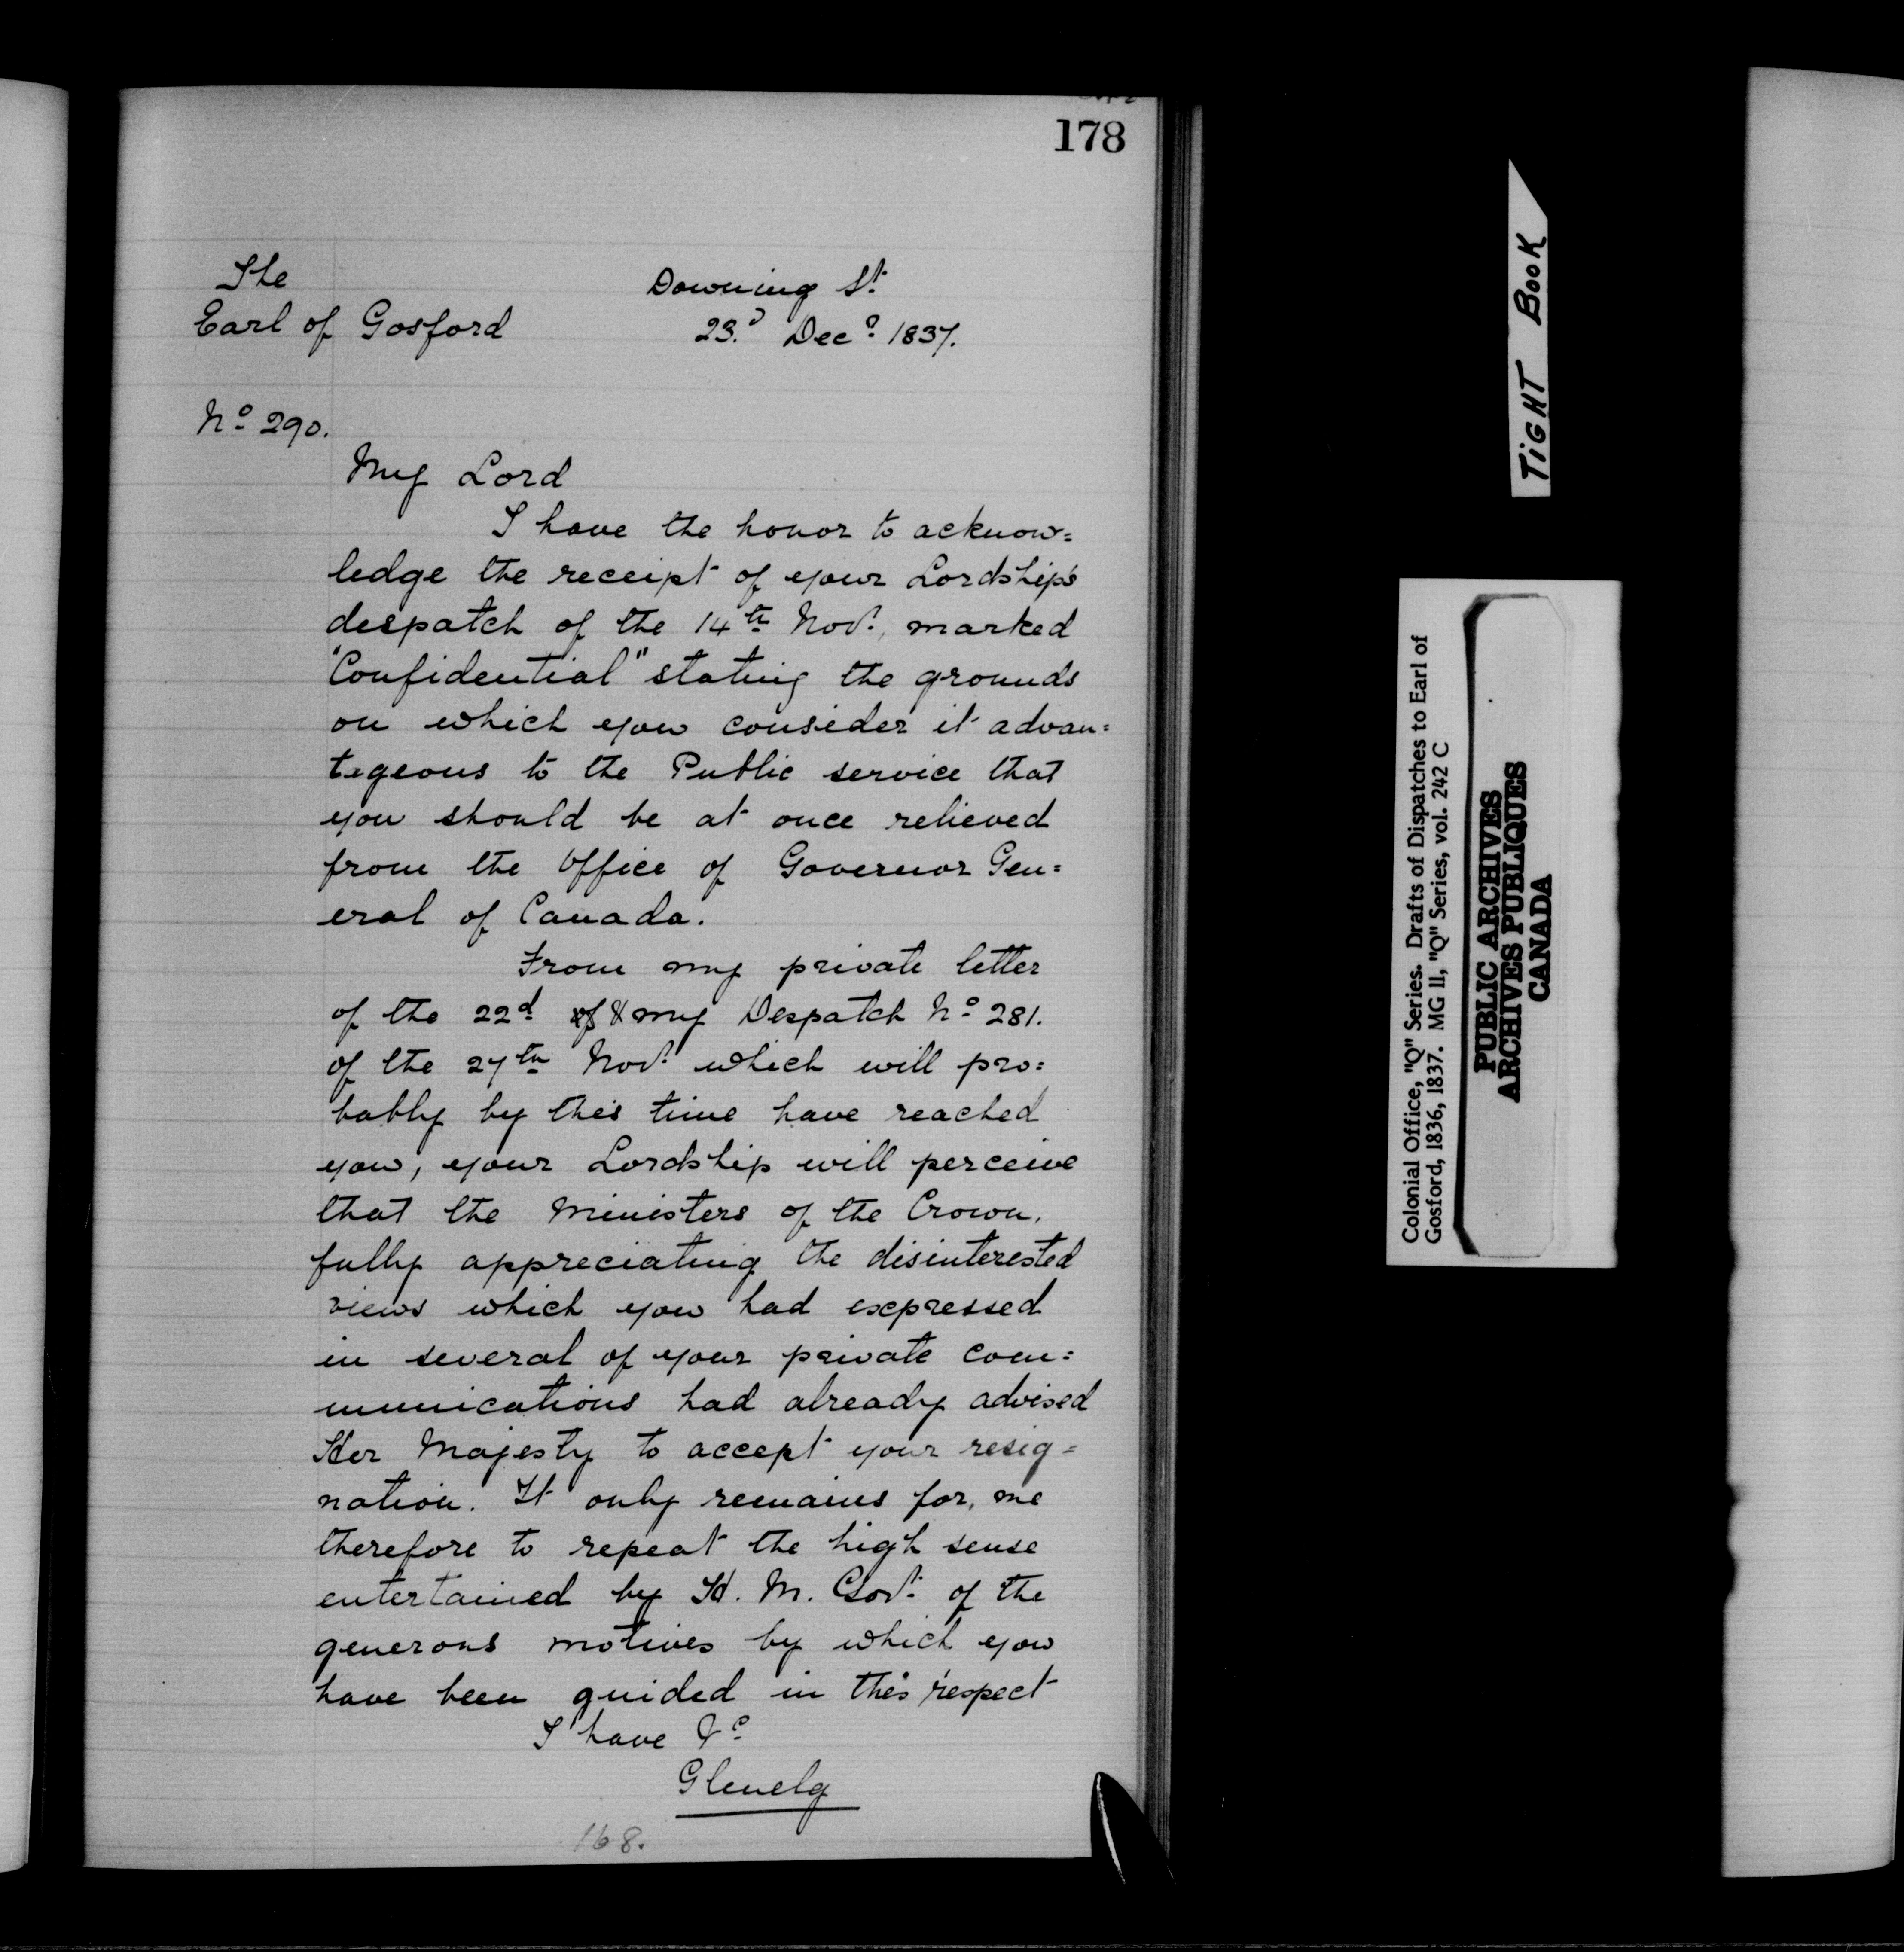 178
The
Earl of Gosford
Downing St.
23.d Decr. 1837.
No. 290.
My Lord
I have the honor to acknow=
ledge the receipt of your Lordship's
despatch of the 14th Novr., marked
"Confidential" stating the grounds
on which you consider it advan=
tageous to the Public service that
you should be at once relieved
from the Office of Governor Gen=
eral of Canada.
From my private letter
of the 22d & my Despatch No. 281.
of the 27th Novr. which will pro=
bably by this time have reached
you, your Lordship will perceive
that the Ministers of the Crown,
fully appreciating the disinterested
views which you had expressed
in several of your private com=
munications had already advised
Her Majesty to accept your resig=
nation. It only remains for, me
therefore to repeat the high sense
entertained by H. M. Govt. of the
generous motives by which you
have been guided in this respect
I have &c
Glenelg
168.
TIGHT BOOK
Colonial Office, "Q" Series. Drafts of Dispatches to Earl of
Gosford, 1836, 1837. MG 11, "Q" Series, vol. 242 C
PUBLIC ARCHIVES
ARCHIVES PUBLIQUES
CANADA